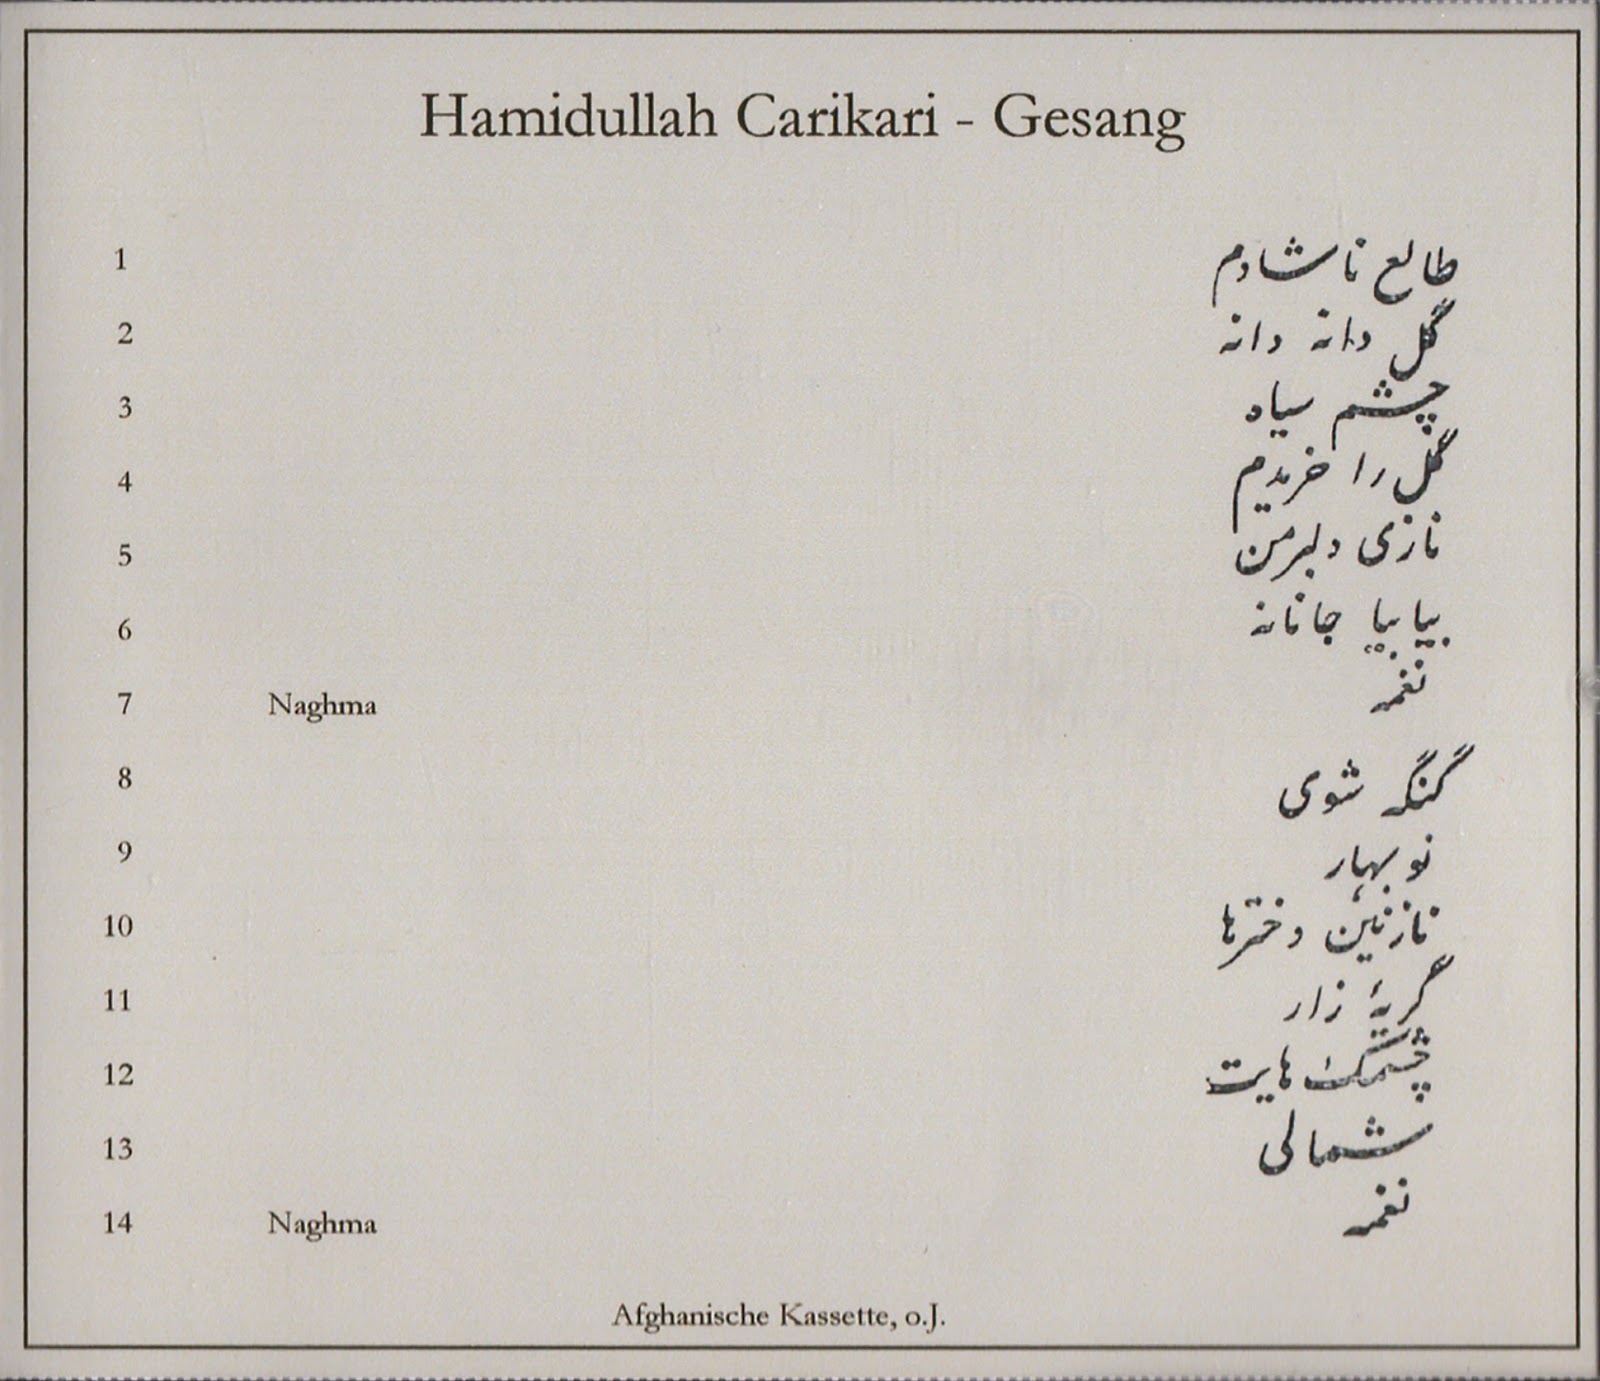 Hamidullah Carikari - Gesang
1 طالع ناشادم
2 گل دانه دانه
3 چشم سیاه
4 گل را خریدم
5 نازی دلبر من
6 بیا بیا جانانه
7 Naghma نغمه
8 گنگه شوی
9 نو بهار
10 نازنین دخترها
11 گریۀ زار
12 چشمک هایت
13 شمالی
14 Naghma نغمه
Afghanische Kassette, o.J.